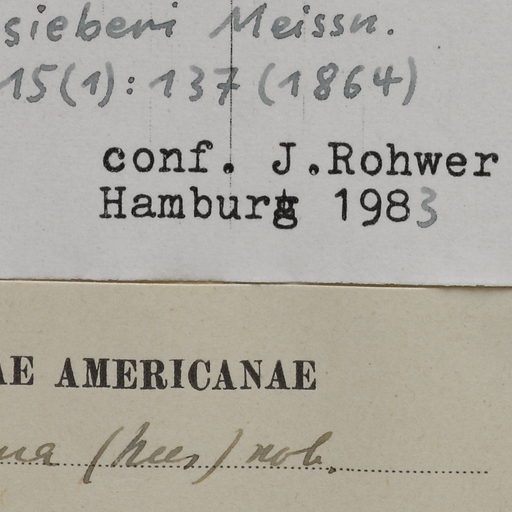 sieberi Meissn.
15(1): 137 (1864)
conf. J.Rohwer
Hamburg 1983
AE AMERICANAE
na (Nees) nob.